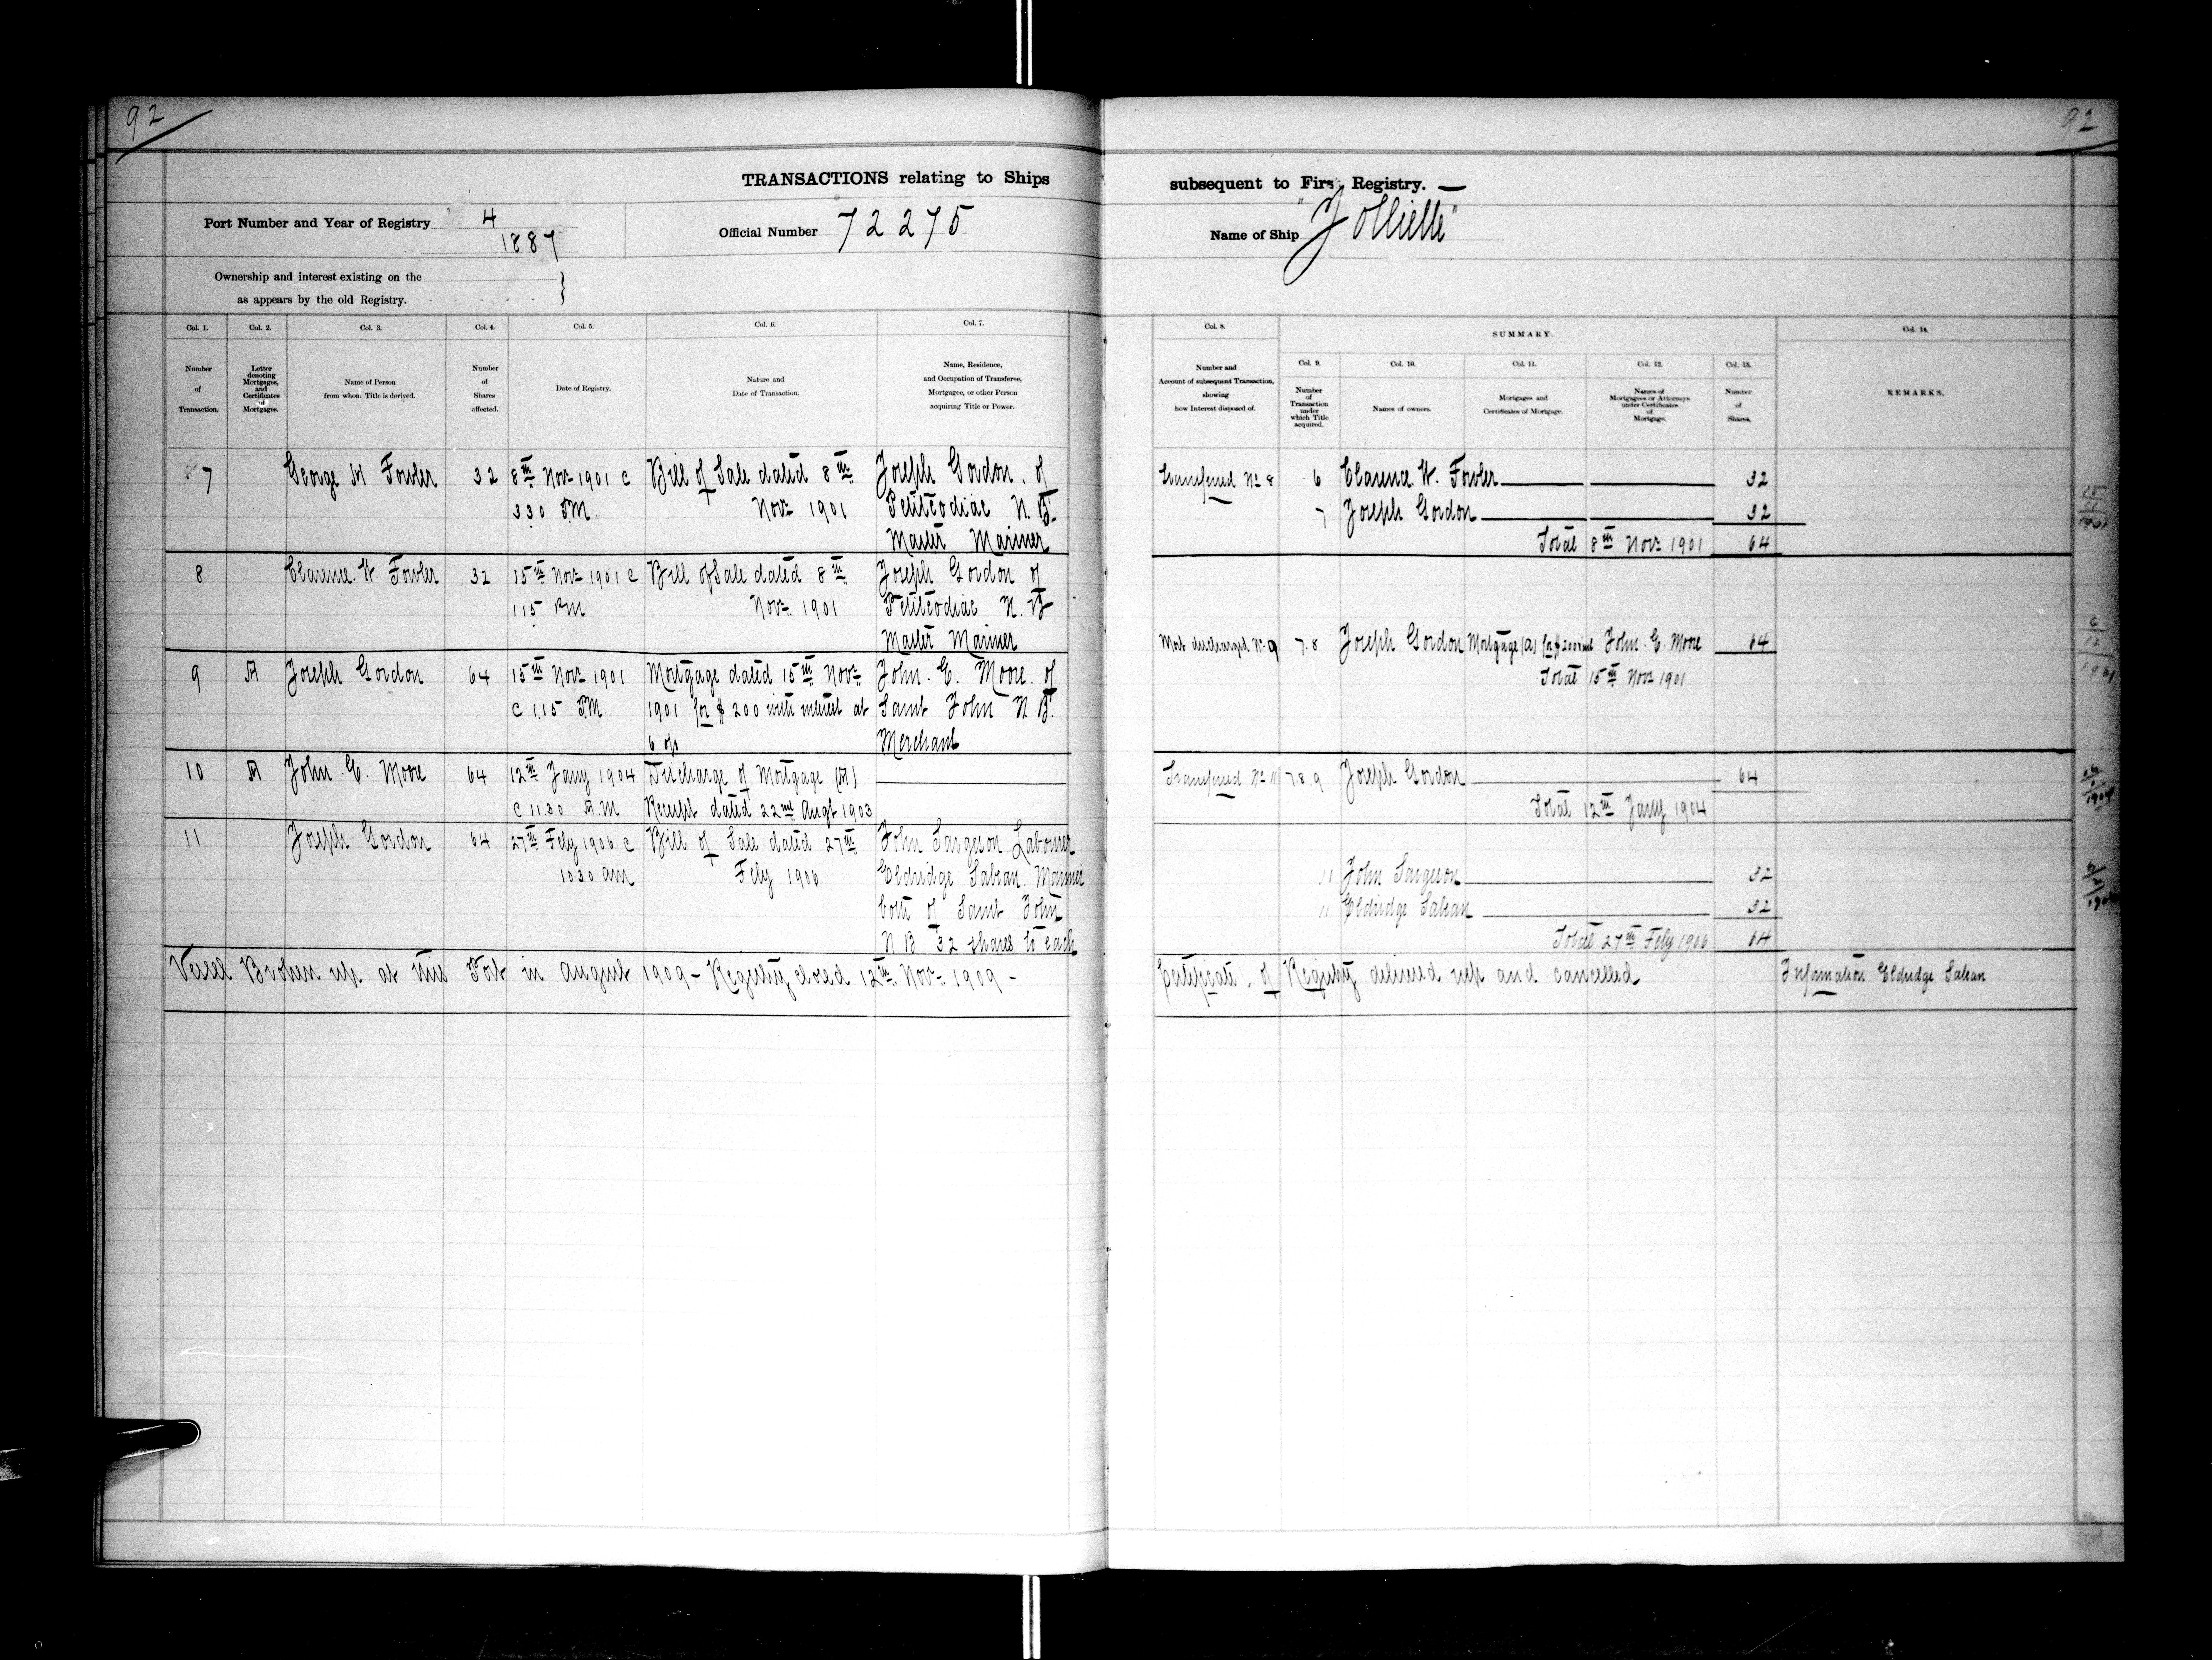 92
92
TRANSACTIONS relating to Ships
subsequent to First Registry.
Port Number and Year of Registry 4
1887
Official Number 72275
Name of Ship "Jolliette"
Ownership and interest existing on the
as appears by the old Registry.
Col. 1. Col. 2. Col. 3. Col. 4. Col. 5. Col. 6. Col. 7.
Number of Transaction.
Letter denoting Mortgages, and Certificates of Mortgages.
Name of Person from whom Title is derived.
Number of Shares affected.
Date of Registry.
Nature and Date of Transaction.
Name, Residence, and Occupation of Transferee, Mortgagee, or other Person acquiring Title or Power.
7 George M Fowler 32 8th Novr 1901 @ Bill of Sale dated 8th Joseph Gordon of
3.30 P.M. Novr 1901 Petitcodiac N.B.
Master Mariner
8 Clarence W. Fowler 32 15th Novr 1901 @ Bill of Sale dated 8th Joseph Gordon of
1.15 PM Novr 1901 Petitcodiac N.B
Master Mariner
9 A Joseph Gordon 64 15th Novr 1901 Mortgage dated 15th Novr John. E. Moore of
@ 1.15 P.M. 1901 for $ 200 with interest at Saint John N B.
6 o/o Merchant
10 A John E. Moore 64 12th Jany 1904 Discharge of Mortgage (A)
@ 11.30 A.M Receipt dated 22nd Augt 1903
11 Joseph Gordon 64 27th Feby 1906 @ Bill of Sale dated 27th John Sargeson Labourer
10 30 am Feby 1906 Eldridge Sabean. Mariner
both of Saint John
N B 32 shares to each
Vessel Broken up at this Port in August 1909 - Registry closed 12th Novr 1909 -
Col. 8. SUMMARY. Col. 14.
Col. 9. Col. 10. Col. 11. Col. 12. Col. 13.
Number and Account of subsequent Transaction, showing how Interest disposed of.
Number of Transaction under which Title acquired.
Names of owners.
Mortgages and Certificates of Mortgage.
Names of Mortgagees or Attorneys under Certificates of Mortgage.
Number of Shares.
REMARKS.
Transferred No 8 6 Clarence W. Fowler 32
7 Joseph Gordon 32
Total 8th Novr 1901 64
Mort discharged No 9 7.8 Joseph Gordon Mortgage (A) for $ John. E. Moore 64
Total 15th Novr 1901
Transferred No 11 7 8 9 Joseph Gordon 64
Total 12th Jany 1904
11 John Sargeson 32
11 Eldridge Sabean 32
Total 27th Feby 1906 64
Certificate of Registry delivered up and cancelled Information Eldridge Sabean
15
12
1901
6
12
1901